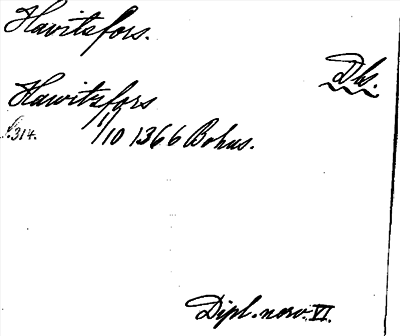 Havitsfors.
Dls.
Hawitzfors
S. 314. 1/10 1366 Bohus.
Dipl. norv. VI.